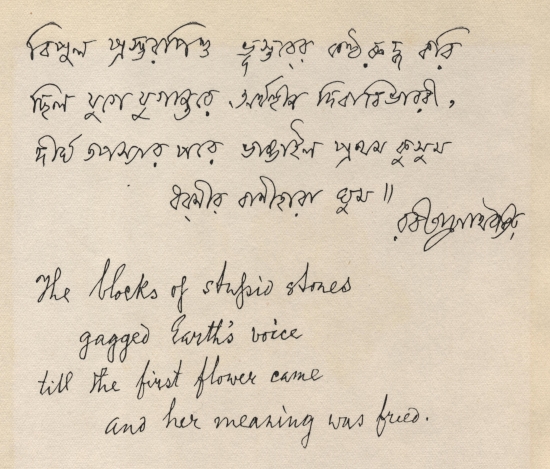 বিপুল প্রস্তরপিণ্ড ভূস্তরের কণ্ঠরুদ্ধ করি
ছিল যুগে যুগান্তরে অর্থহীন দিবাবিভাবরী,
দীর্ঘ তপস্যার পরে ভাঙাইল প্রথম কুসুম
ধরণীর বাণীহারা ঘুম॥
রবীন্দ্রনাথ ঠাকুর
The blocks of stupid stones
gagged Earth's voice
till the first flower came
and her meaning was freed.